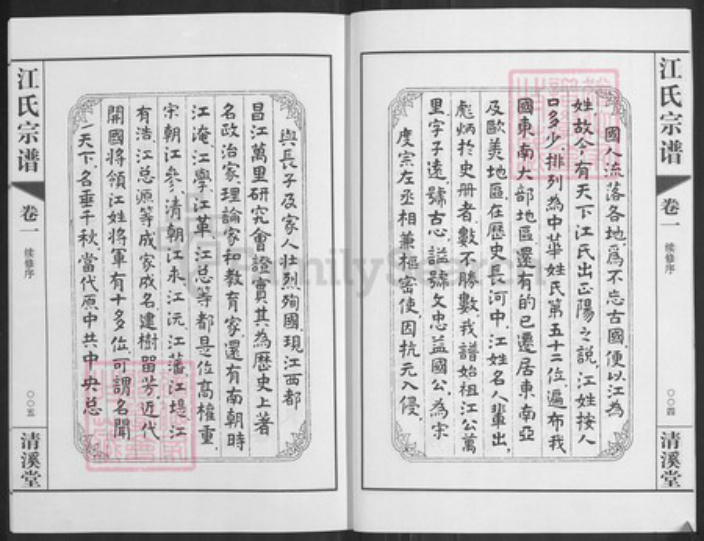 江氏宗谱
卷一
续修序
〇〇四
清溪堂
國人流落各地，爲不忘古國，便以江為
姓，故今有天下江氏出正陽之說，江姓按人
口多少，排列為中華姓氏第五十二位，遍布我
國東南大部地區，還有的已遷居東南亞
及歐美地區在歷史長河中，江姓名人輩出，
彪炳於史册者，數不勝數，我譜始祖江公萬
里字子遠，號古心，謚號文忠益國公，為宋
度宗左丞相兼樞密使，因抗元入侵，
與長子及家人壯烈殉國，現江西都
昌江萬里研究會證實其為歷史上著
名政治家，理論家和教育家，還有南朝時
江淹，江學，江革，江总等都是位高權重，
宋朝江參，清朝江永，江沅，江藩，江堤，江
有浩，江总源等成家成名，建樹留芳，近代
開國將領江姓將軍有十多位，可謂名聞
天下，名垂千秋，當代原中共中央总
江氏宗谱
卷一
续修序
〇〇五
清溪堂
FamilySearch